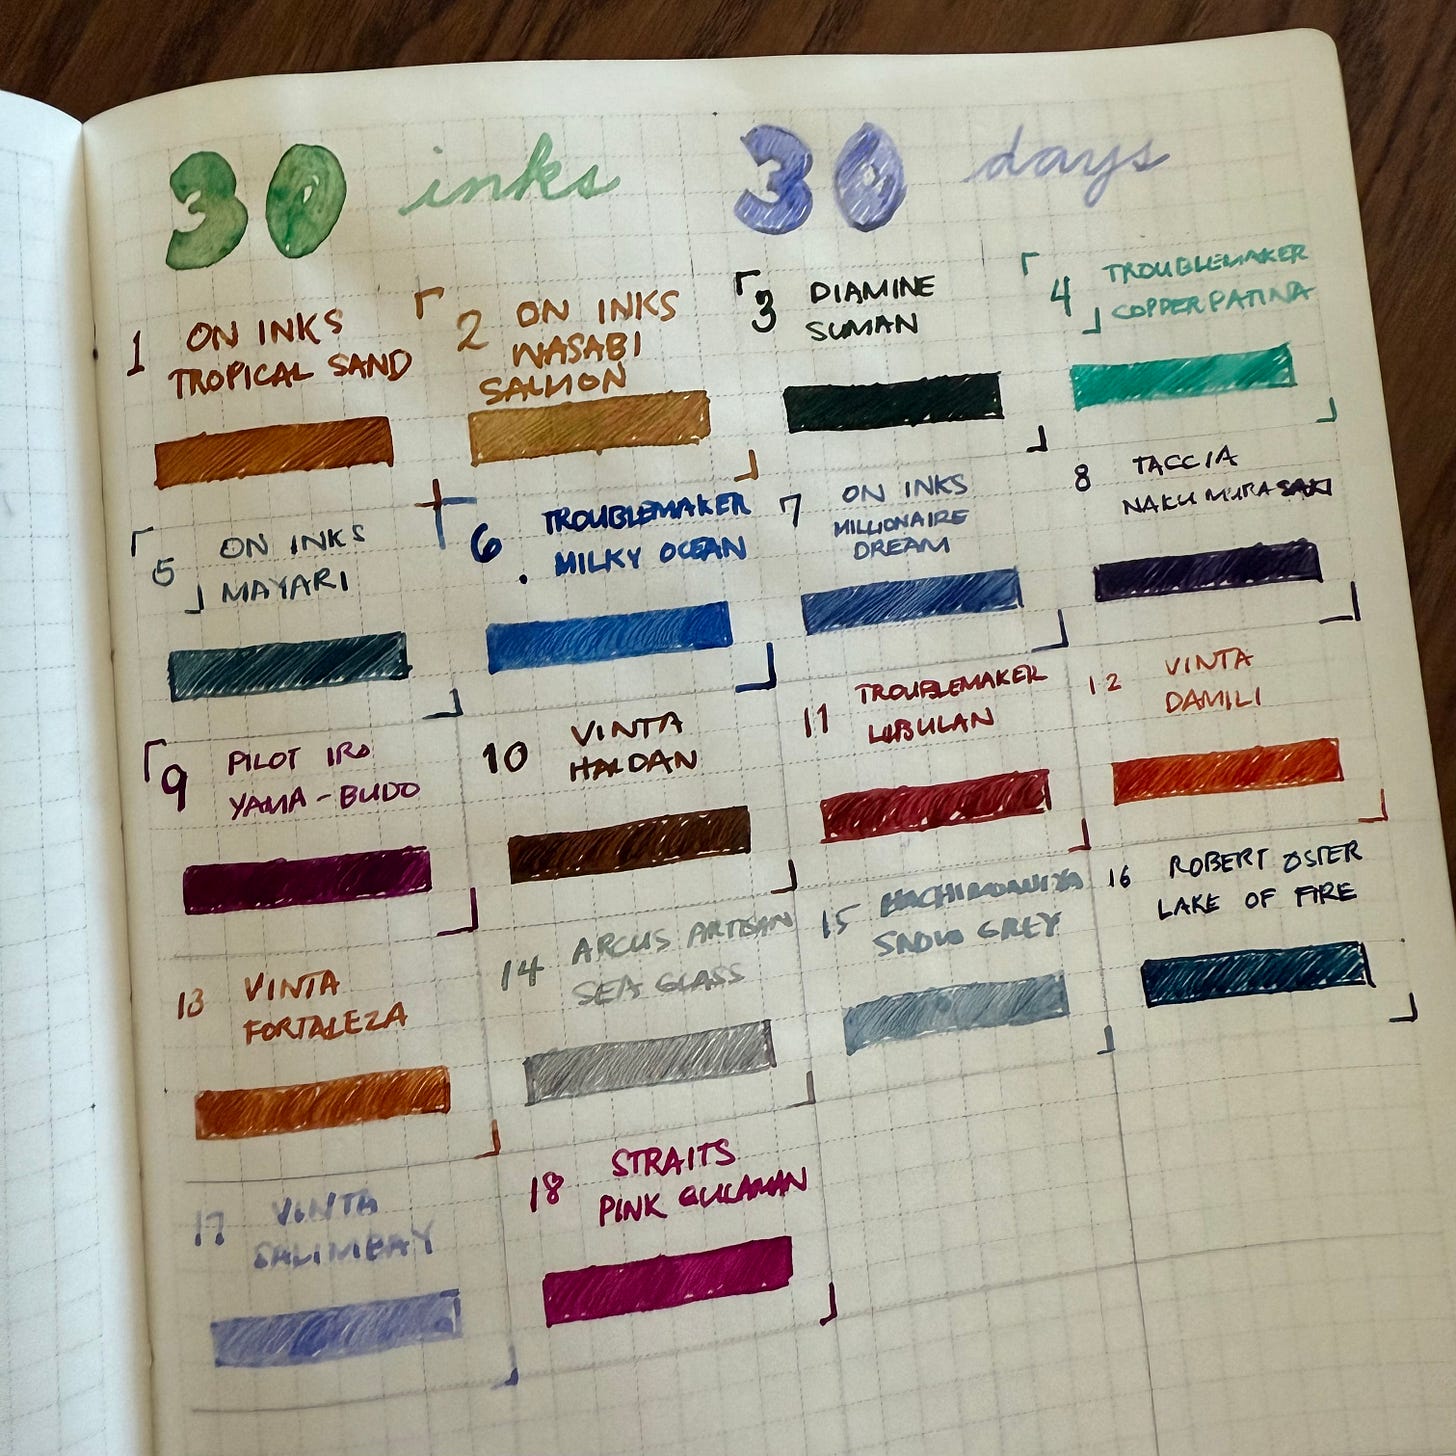 30 inks 30 days
1 ON INKS
TROPICAL SAND
2 ON INKS
WASABI
SALMON
3 DIAMINE
SUMAN
4 TROUBLEMAKER
COPPER PATINA
5 ON INKS
MAYARI
6 TROUBLEMAKER
MILKY OCEAN
7 ON INKS
MILLIONAIRE
DREAM
8 TACCIA
NAKU MURASAKI
9 PILOT IRO
YAMA-BUDO
10 VINTA
HALDAN
11 TROUBLEMAKER
LUBULAN
12 VINTA
DAMILI
13 VINTA
FORTALEZA
14 ARCUS ARTISAN
SEA GLASS
15
SNOW GREY
16 ROBERT OSTER
LAKE OF FIRE
17 VINTA
SALIMBAY
18 STRAITS
PINK GULAMAN